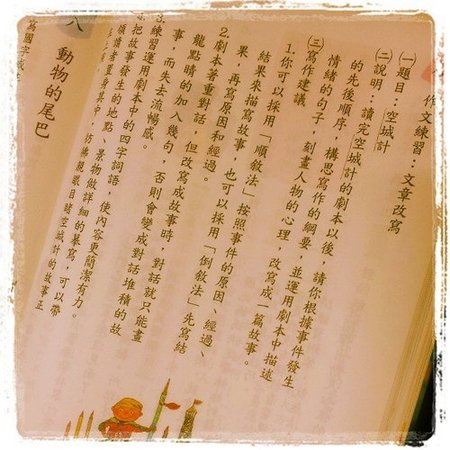 作文練習：文章改寫
㈠題目：空城計
㈡說明：讀完空城計的劇本以後，請你根據事件發生
的先後順序，構思寫作的綱要，並運用劇本中描述
情緒的句子，刻畫人物的心理，改寫成一篇故事。
㈢寫作建議
1.你可以採用「順敘法」按照事件的原因、經過、
結果來描寫故事，也可以採用「倒敘法」先寫結
果，再寫原因和經過。
2.劇本著重對話，但改寫成故事時，對話就只能畫
龍點睛的加入幾句，否則會變成對話堆積的故
事，而失去流暢感。
3.練習運用劇本中的四字詞語，使內容更簡潔有力。
把故事發生的地點、景物做詳細的摹寫，可以帶
領讀者置身其中，彷彿親眼目睹空城計的故事正
八
動物的尾巴